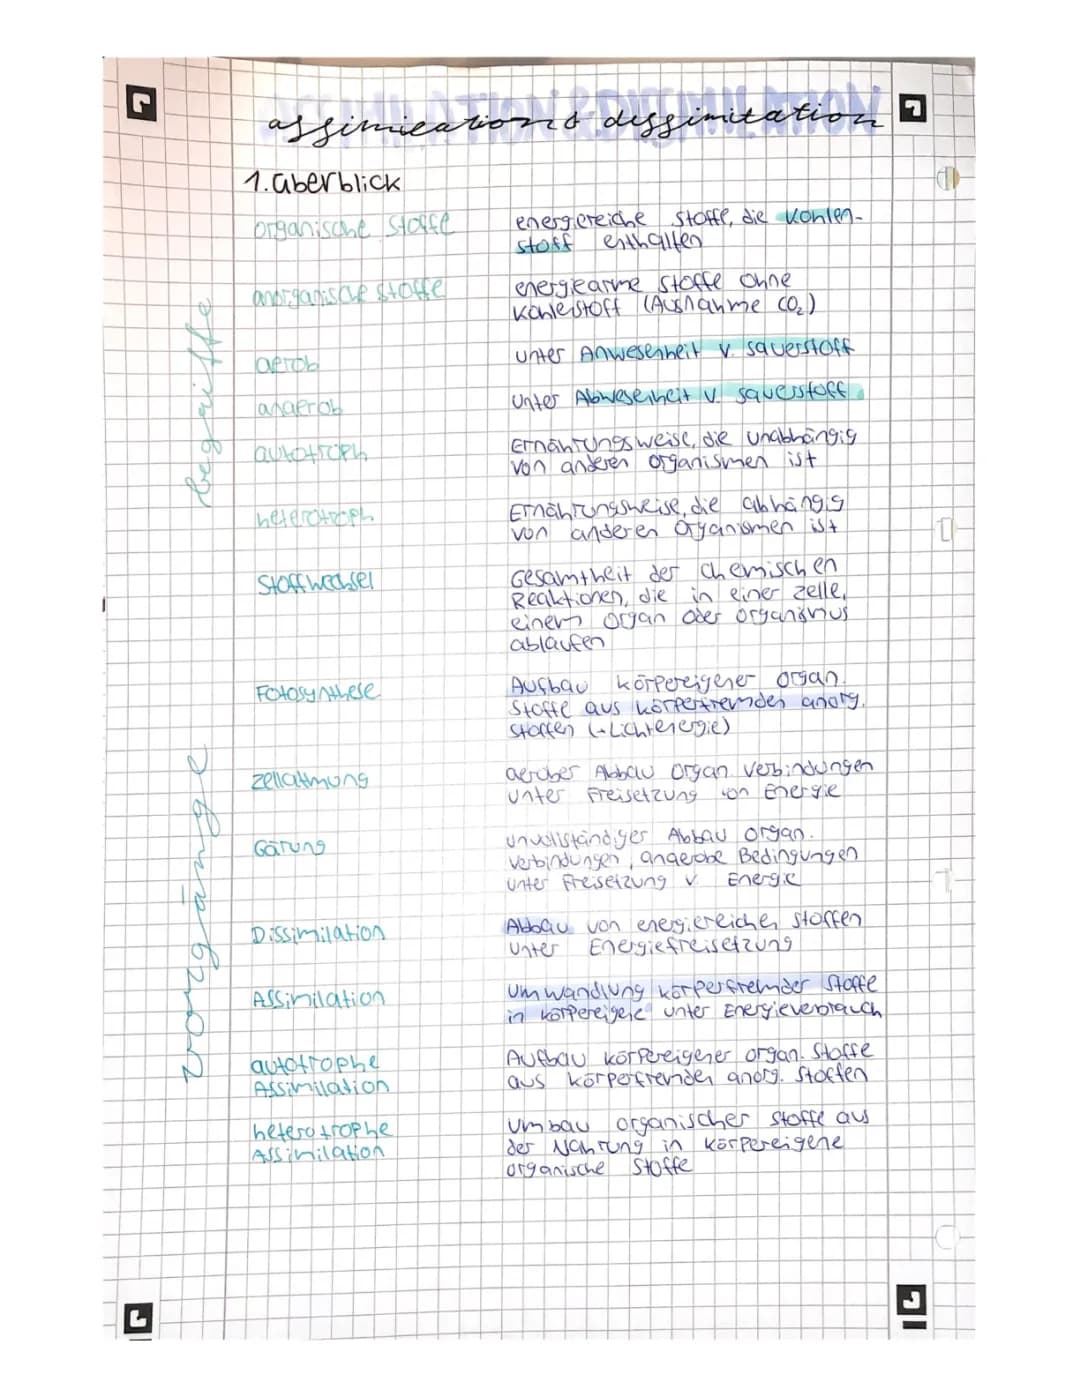 assimilation & dissimilation
1. überblick
begriffe
organische Stoffe
energiereiche Stoffe, die Kohlen-
stoff enthalten
anorganische Stoffe
energiearme Stoffe ohne
Kohlenstoff (Ausnahme CO₂)
aerob
unter Anwesenheit v. Sauerstoff
anaerob
unter Abwesenheit v. Sauerstoff
autotroph
Ernährungsweise, die unabhängig
von anderen Organismen ist
heterotroph
Ernährungsweise, die abhängig
von anderen Organismen ist
Stoffwechsel
Gesamtheit der chemischen
Reaktionen, die in einer Zelle,
einem Organ oder Organismus
ablaufen
vorgänge
Fotosynthese
Aufbau körpereigener organ.
Stoffe aus körperfremden anorg.
Stoffen (+Lichtenergie)
Zellatmung
aerober Abbau organ. Verbindungen
unter Freisetzung von Energie
Gärung
unvollständiger Abbau organ.
Verbindungen, anaerobe Bedingungen
unter Freisetzung v. Energie
Dissimilation
Abbau von energiereichen Stoffen
unter Energiefreisetzung
Assimilation
Umwandlung körperfremder Stoffe
in körpereigene unter Energieverbrauch
autotrophe
Assimilation
Aufbau körpereigener organ. Stoffe
aus körperfremden anorg. Stoffen
heterotrophe
Assimilation
Umbau organischer Stoffe aus
der Nahrung in körpereigene
organische Stoffe